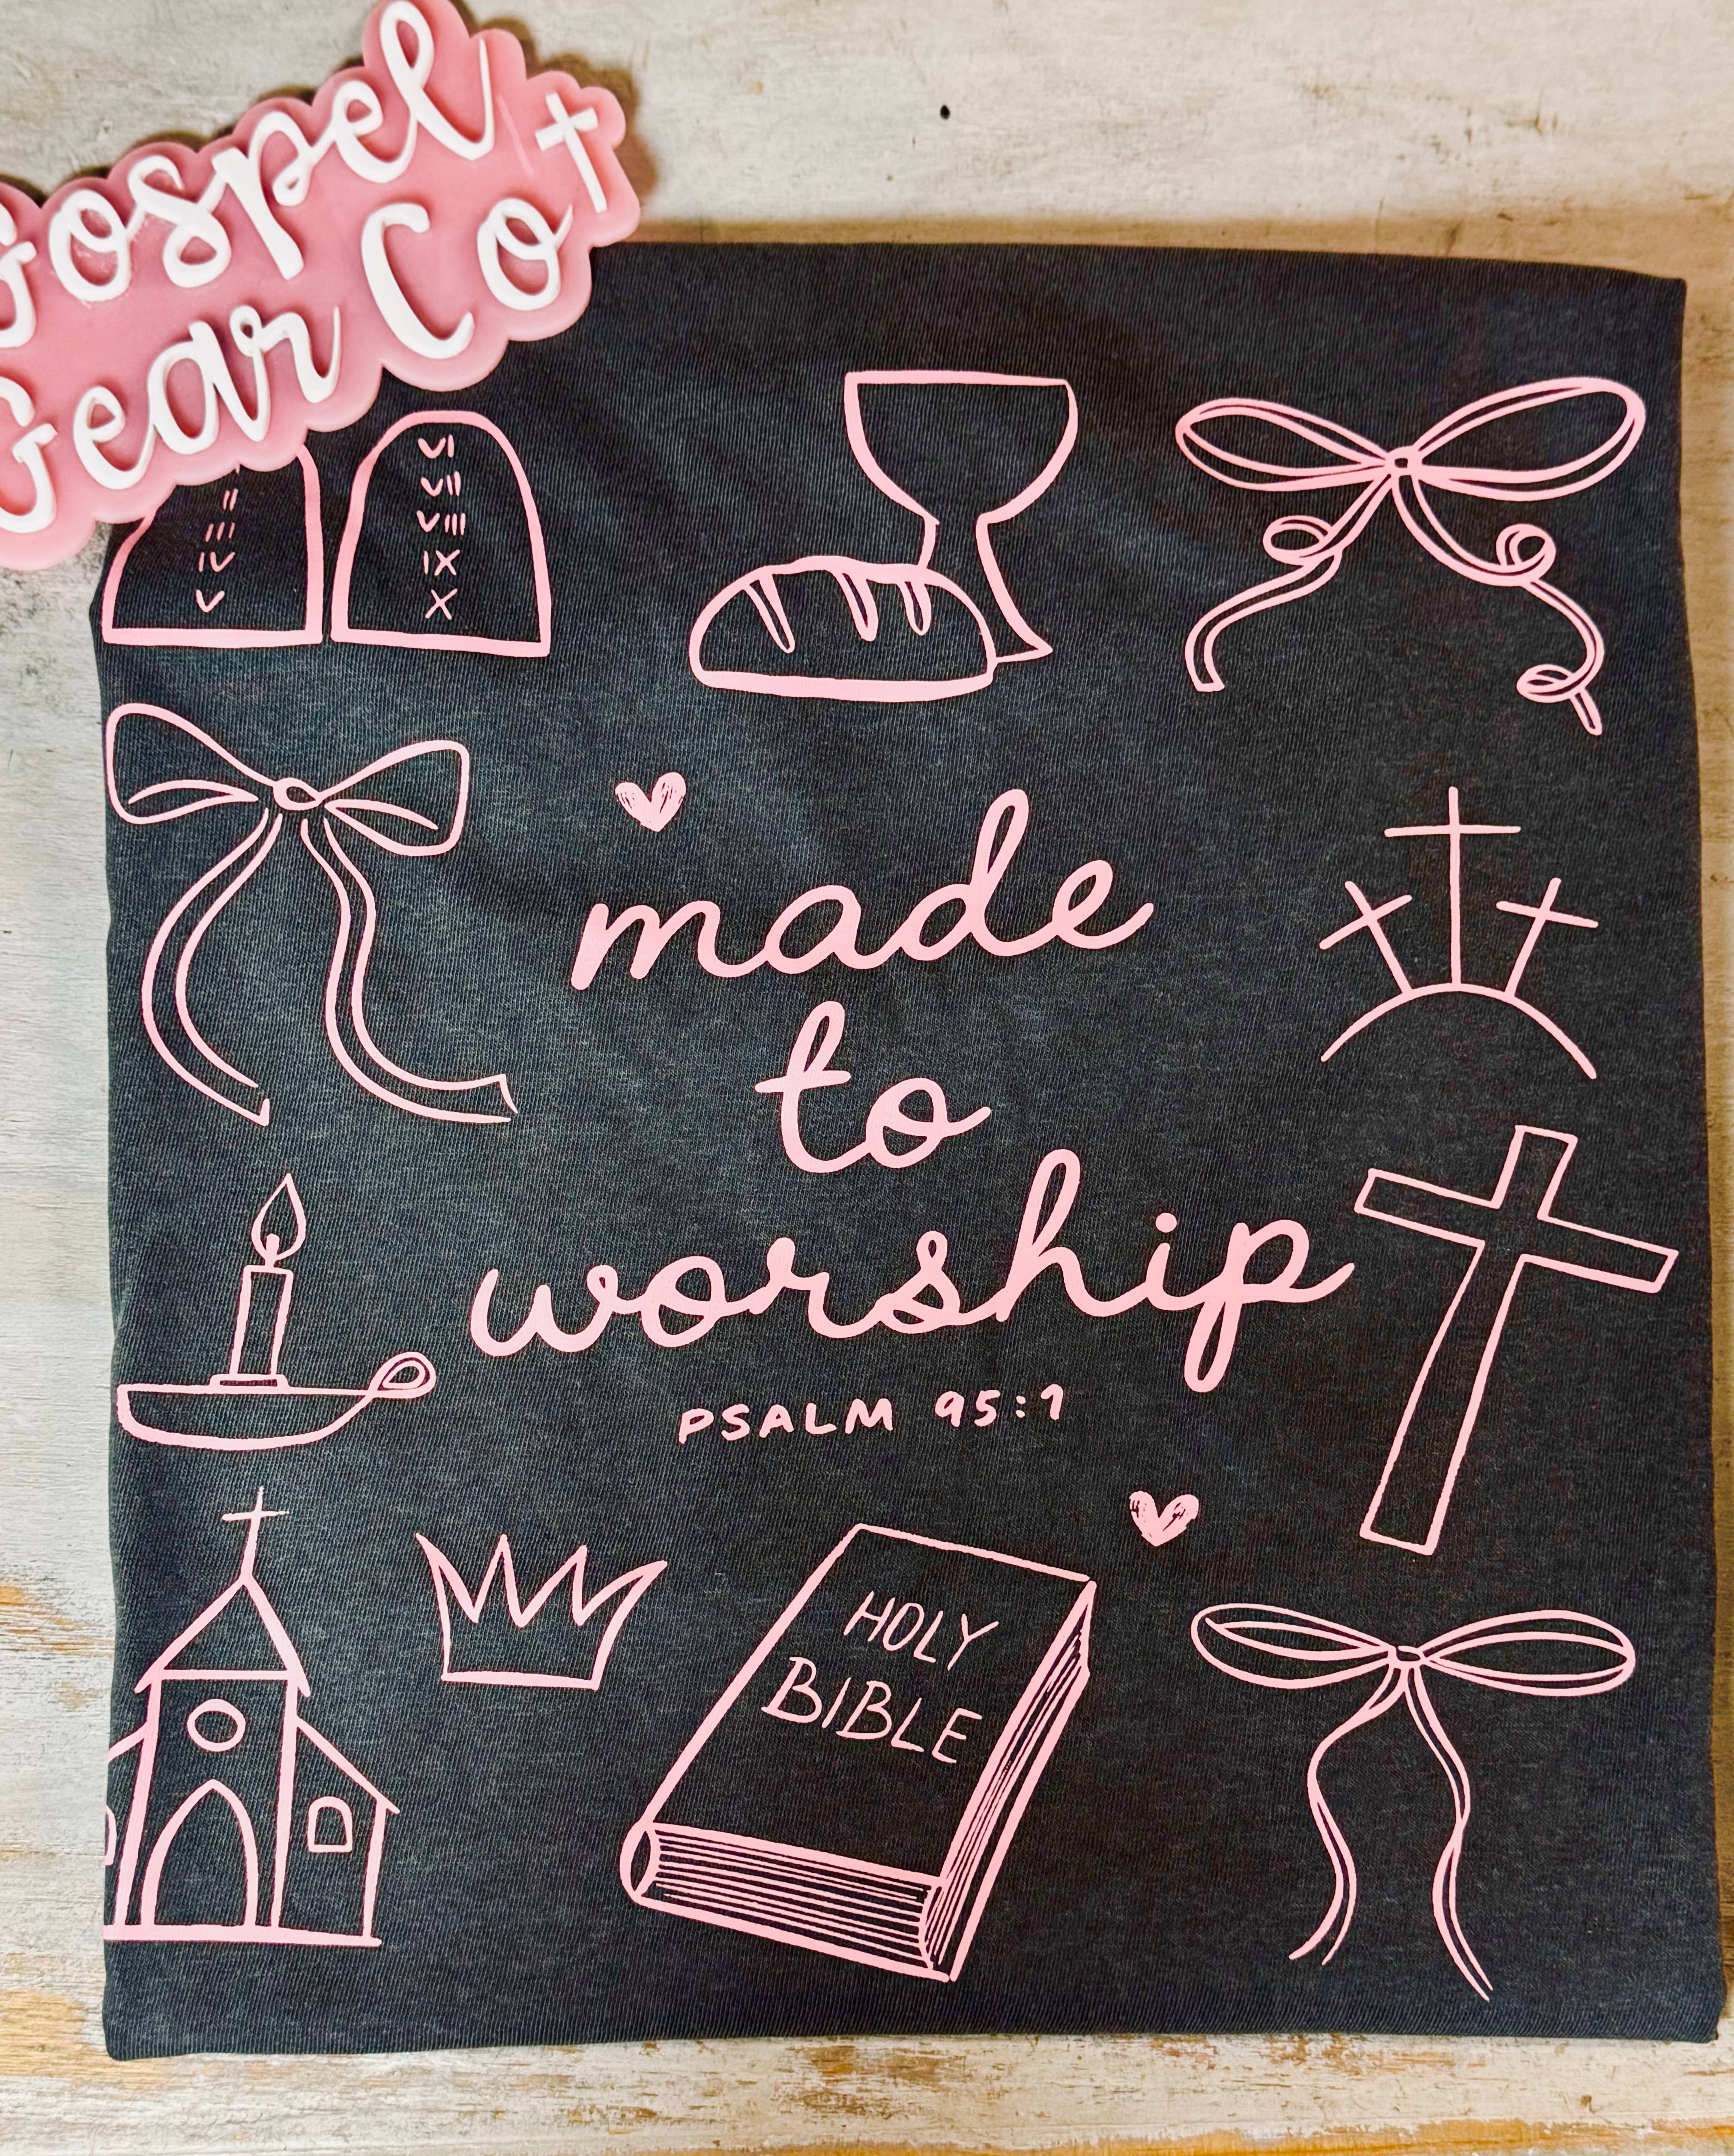 Gospel
Gear Co
II
III
IV
V
VI
VII
VIII
IX
X
made
to
worship
PSALM 95:1
HOLY
BIBLE